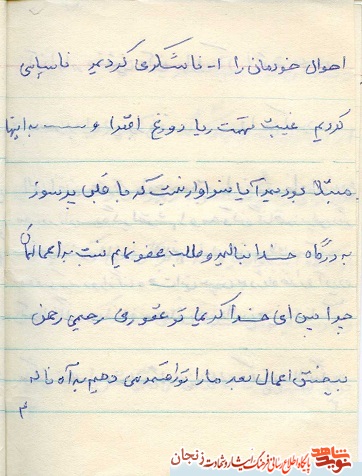 احوال خودمانی را ۱- ناشکری کردیم ناسپاسی
کردیم غیبت تهمت ریا دروغ افترا و ــــ به اینها
مبتلا بودیم آیا سزاوار نیست که با قلبی پر سوز
به درگاه خدا بنالیم و طلب عفو نمایم نسبت به اعمالمان
چرا پس ای خدا کریما تو غفوری رحیمی رحمن
ببخش اعمال بد ما را تو قسم می دهیم به آه ناله
۴
نوید شاهد
پایگاه اطلاع رسانی فرهنگ ایثار و شهادت زنجان